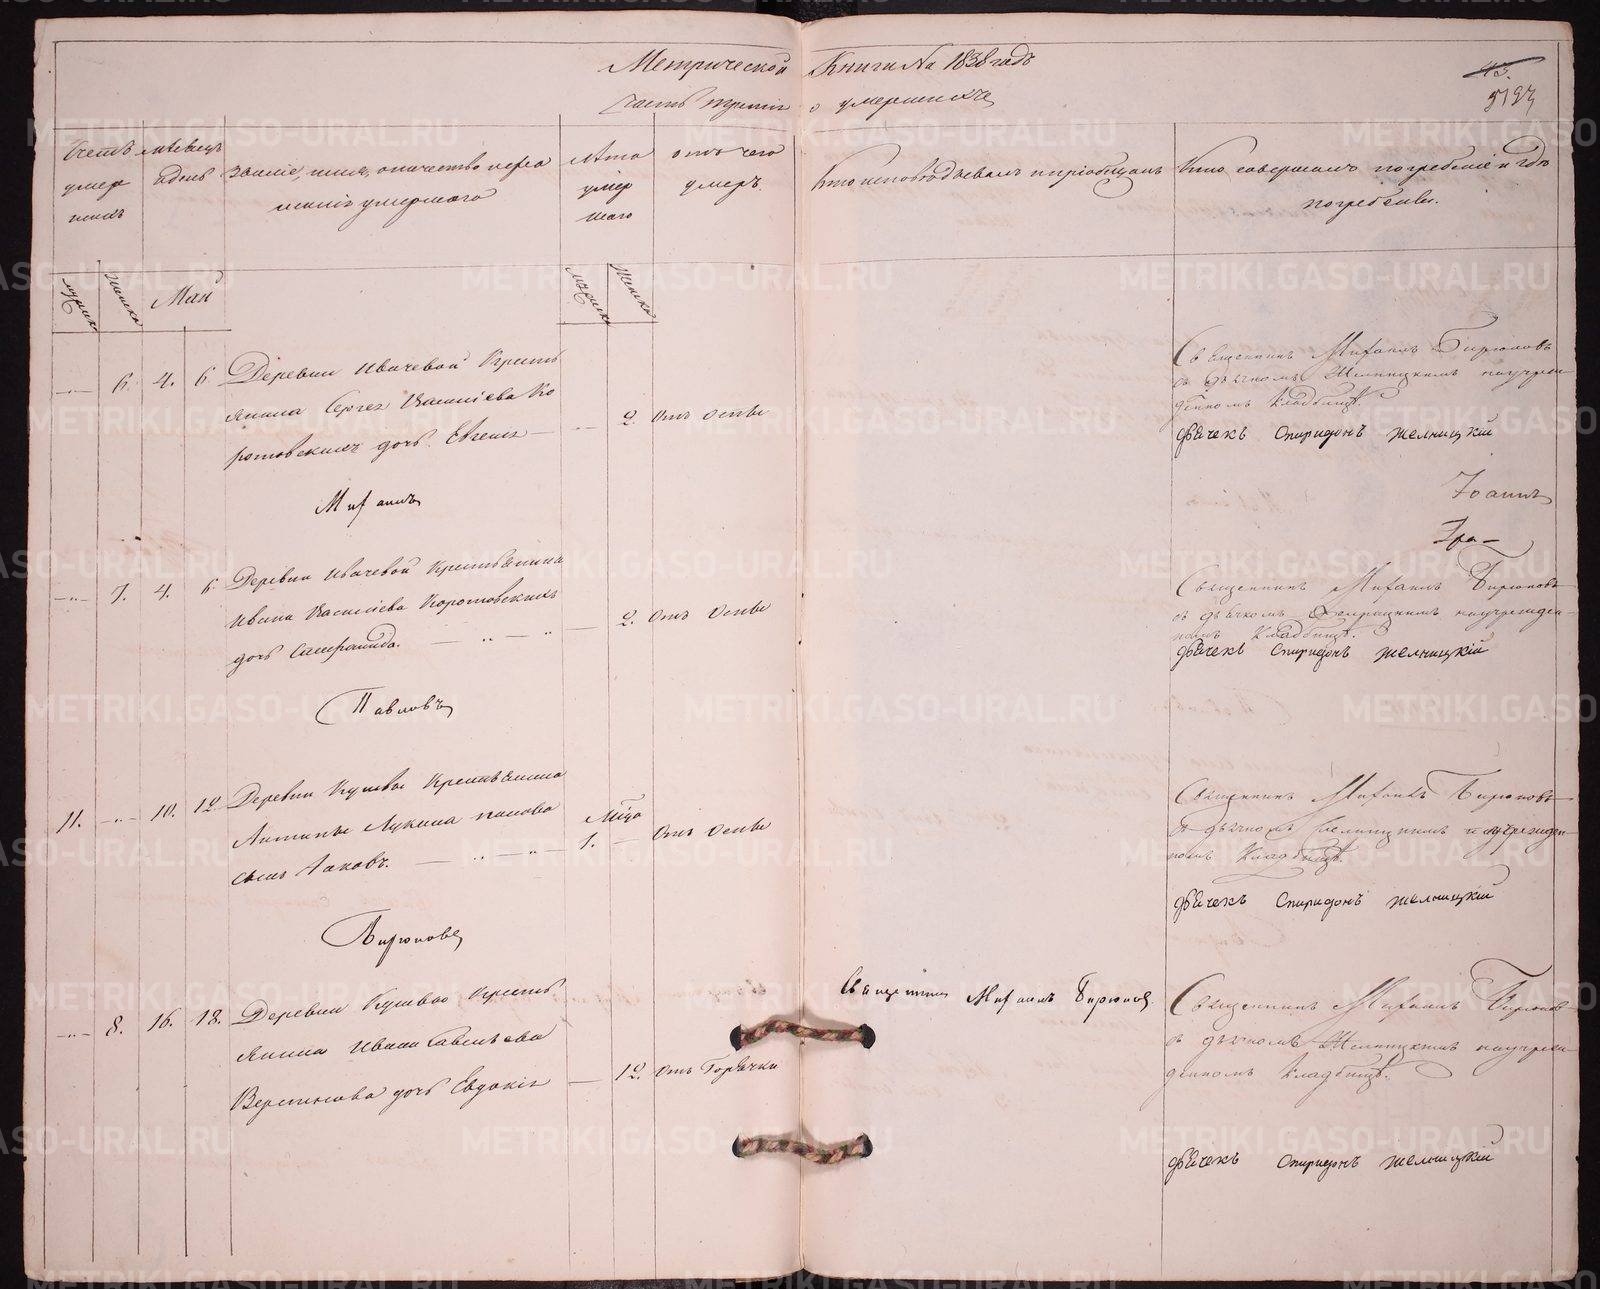 Метрической Книги На 1838 годъ
43.
часть третія о умершихъ
Счетъ умершихъ
мѣсяцъ и день
Званіе, имя, отчество и фамилія умершаго
Лѣта умершаго
отъ чего умеръ
Кто исповѣдывалъ и пріобщалъ
Кто совершалъ погребеніе и гдѣ погребены.
мужска
женска
Май
мужска
женска
6. 4. 6 Деревни Ивачевой Кресть
янина Сергея Василіева Ко
ротовскихъ дочь Евгенія 2. Отъ Оспы
Священникъ Михаилъ Бирюковъ
съ дьячкомъ Желницкимъ на учреж
денномъ Кладбищѣ
дьячекъ Спиридонъ Желницкій
Михаилъ
Іоаннъ
7. 4. 6 Деревни Ивачевой Крестьянина
Ивана Василіева Коротовскихъ
дочь 2. Отъ Оспы
Священникъ Михаилъ Бирюковъ
съ дьячкомъ на учрежден
номъ Кладбищѣ.
дьячекъ Спиридонъ Желницкій
Павловъ
11. 10. 12. Деревни Крестьянина
Антипы Лукина Попова
сынъ Іаковъ. Мѣся 1. Отъ Оспы
Священникъ Михаилъ Бирюковъ
съ дьячкомъ Желницкимъ на учрежден
номъ Кладбищѣ.
дьячекъ Спиридонъ Желницкій
Бирюковъ
8. 16. 18. Деревни Кресть
янина Ивана Савельева
дочь Евдокія 12. Отъ Горячки
Священникъ Михаилъ Бирюковъ
Священникъ Михаилъ Бирюков
съ дьячкомъ Желницкимъ на учреж
денномъ Кладбищѣ.
дьячекъ Спиридонъ Желницкій
METRIKI.GASO-URAL.RU